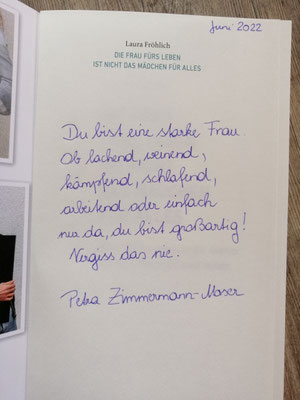 Juni 2022
Laura Fröhlich
DIE FRAU FÜRS LEBEN
IST NICHT DAS MÄDCHEN FÜR ALLES
Du bist eine starke Frau.
Ob lachend, weinend,
kämpfend, schlafend,
arbeitend oder einfach
nur da, du bist großartig!
Vergiss das nie.
Petra Zimmermann-Moser